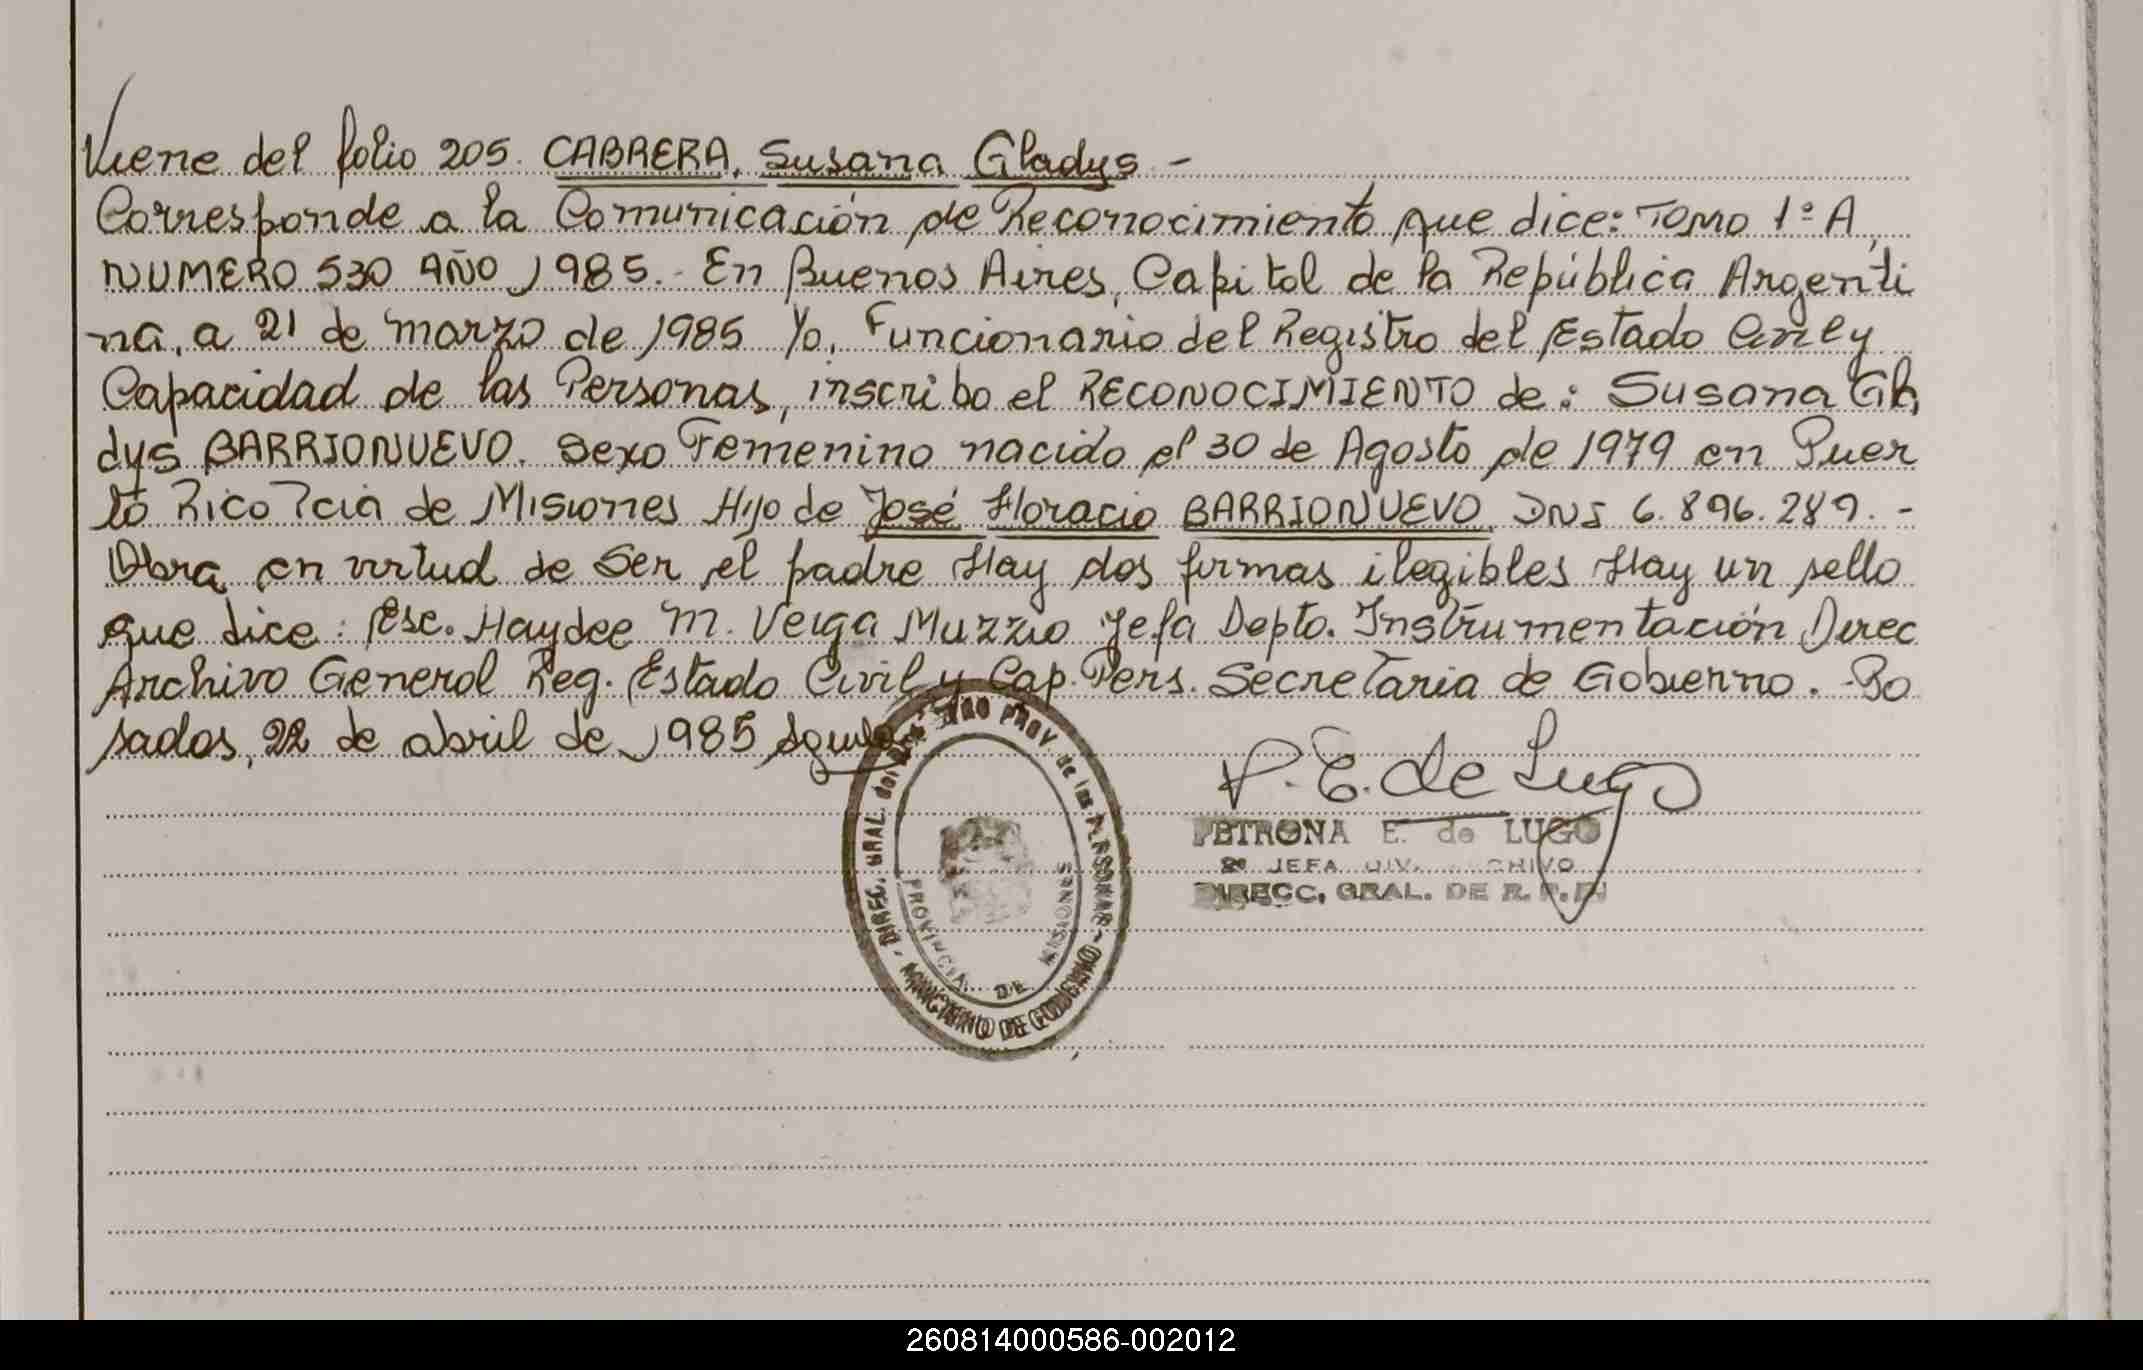 Viene del folio 205. CABRERA, Susana Gladys -
Corresponde a la Comunicación de Reconocimiento que dice: Tomo 1º A,
NUMERO 530 AÑO 1985.- En Buenos Aires, Capital de la República Argenti
na, a 21 de marzo de 1985 Yo, Funcionario del Registro del Estado Civil y
Capacidad de las Personas, inscribo el RECONOCIMIENTO de: Susana Gla
dys BARRIONUEVO. Sexo Femenino nacido el 30 de Agosto de 1979 en Puer
to Rico Pcia de Misiones Hijo de José Horacio BARRIONUEVO, DNI 6.896.289.-
Obra en virtud de ser el padre Hay dos firmas ilegibles Hay un sello
que dice: Esc. Haydee M. Veiga Muzzio Jefa Depto. Instrumentación Direc
Archivo General Reg. Estado Civil y Cap. Pers. Secretaria de Gobierno. Po
sadas, 22 de abril de 1985
P. E. de Lugo
PETRONA E. de LUGO
2º JEFA DIV. ARCHIVO
DIRECC. GRAL. DE R. P. P.
DIREC. GRAL. del PROV. de las PERSONAS - MINISTERIO DE GOBIERNO -
PROVINCIA DE MISIONES
260814000586-002012